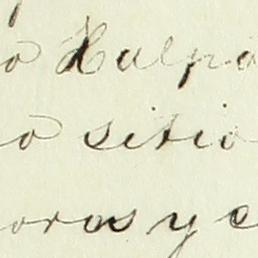 o Xalpa
o sitio
oros y c